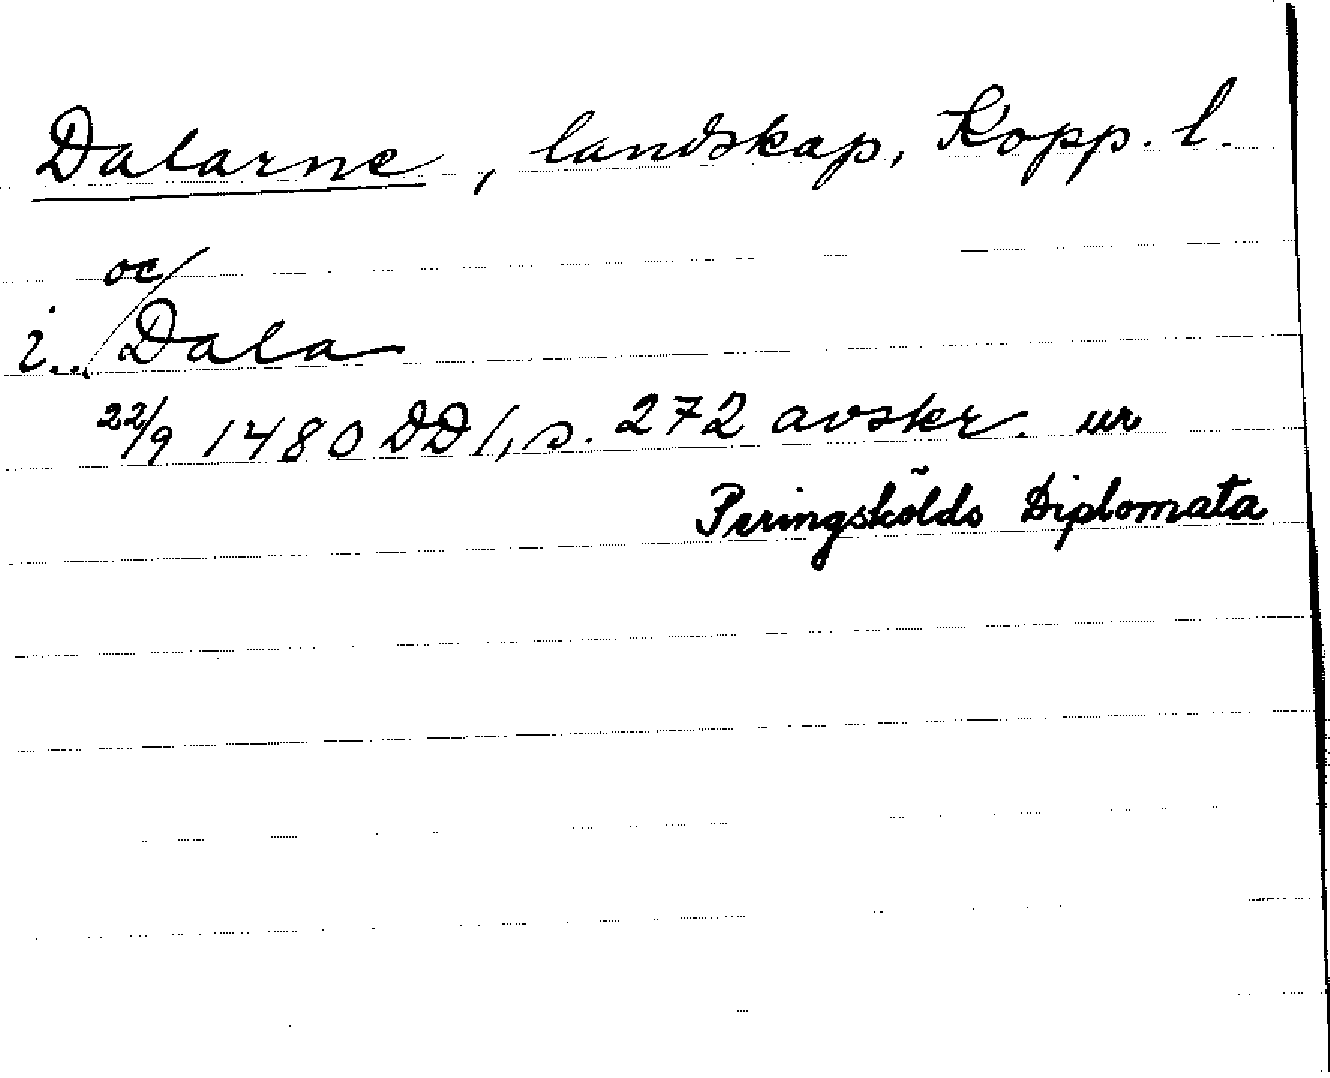 Dalarne, landskap, Kopp. l.
oc/
i../Dala
22/9 1480 DD 1, s. 272 avskr. ur
Peringskölds Diplomata